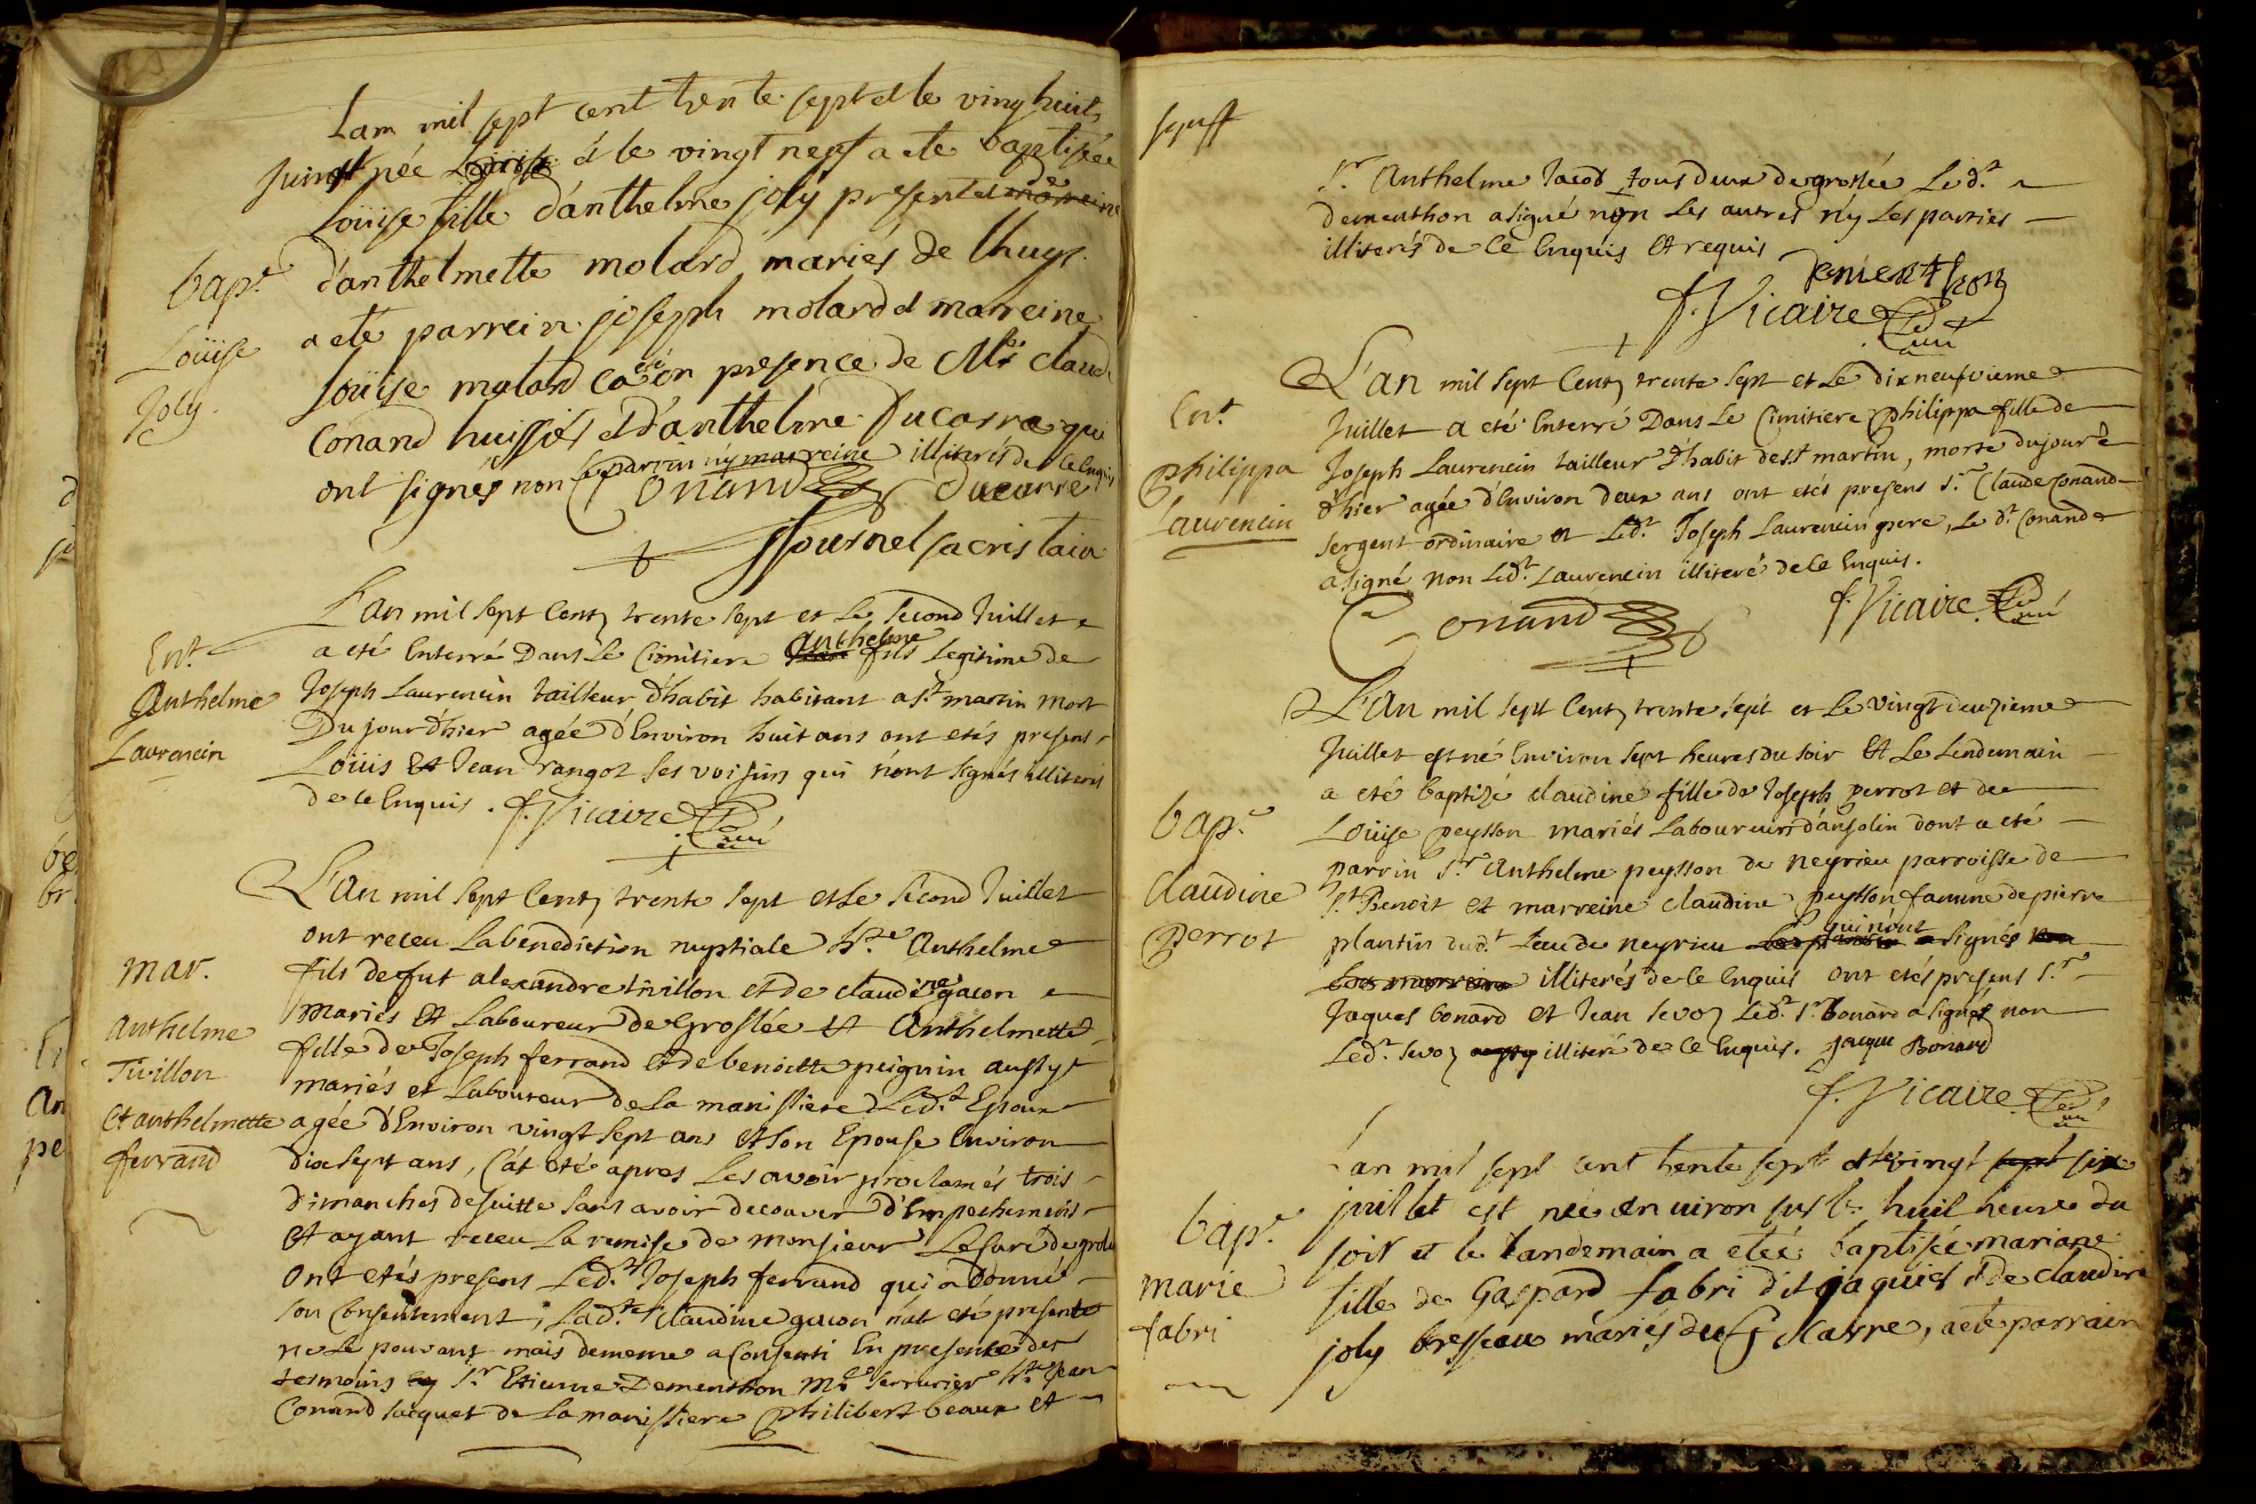 Lam mil sept cent trente sept et le ving huit
juin née et le vingt neuf a ete baptisée
Loüise fille d'anthelme joly present et de
d'anthelmette molard mariés de lhuys
a eté parrein joseph molard et marreine
loüise molard en presence de Mr claude
Conand huissier et d'anthelme Ducarre qui
ont signés non le parrein ny marreine illiterés de ce Enquis
Conand Ducarre
Journel sacristain
bap.e
Loüise
Joly
L'an mil sept Cent trente sept et Le second Juillet
a eté Enterré Dans Le Cimitiere anthelme fils Legitime de
Joseph Laurencin tailleur d'habit habitant a St. martin mort
Du jour d'hier agée d'Environ huit ans ont etés presens
Loüis Et Jean rangot ses voisins qui n'ont signés illiterés
de ce Enquis. f. Vicaire Curé
Ent.
Anthelme
Laurencin
L'an mil sept Cent trente sept et Le second Juillet
ont receu La benediction nuptiale hte. Anthelme
fils de fut alexandre tivillon et de claudine gacon
mariés Et Laboureur de Groslée Et Anthelmette
fille de Joseph ferrand et de benoitte peignin aussy
mariés et Laboureur de La manissiere Led.t Epoux
agée d'Environ vingt sept ans et son Epouse Environ
dix sept ans, C'at eté apres Les avoir proclamés trois
dimanches de suitte sans avoir decouver d'Empechemens
Et ayant receu La remise de monsieur Le Curé de grole
Ont etés presens Led.t Joseph ferrand qui a donné
son Consentement, Lad.te Claudine gacon n'at eté presente
ne Le pouvant mais dememe a Consenti En presence des
tesmoins Sr. Etienne Dementhon Me. serrurier hte. Jean
Conand jacquet de La manissiere philibert beaux Et
mar.
Anthelme
Tivillon
Et anthelmette
ferrand
Sr. Anthelme Jacob tous deux de groslée Led.t
dementhon a signé non Les autres ny Les parties
illiterés de Ce Enquis Et requis
Dementhon
f. Vicaire Curé
L'an mil sept Cent trente sept et Le dixneufvieme
Juillet a eté Enterré Dans Le Cimitiere philippa fille de
Joseph Laurencin tailleur d'habit de St. martin, morte du jour
d'hier agée d'Environ deux ans ont etés presens Sr. Claude Conand
sergent ordinaire et Led.t Joseph Laurencin pere, Le d.t Conand
a signé non Led.t Laurencin illiteré de Ce Enquis.
Conand f. Vicaire Curé
Ent.
philippa
Laurencin
L'an mil sept Cent trente sept et Le vingt deuzieme
Juillet est né Environ sept heures du soir Et Le Lendemain
a eté baptizé claudine fille de Joseph perrot et de
Loüise peysson mariés Laboureurs d'ansolin dont a eté
parrin Sr. Anthelme peysson de neyrieu parroisse de
St. Benoit et marreine claudine peysson famme de pierre
plantin dud.t Lieu de neyrieu qui n'ont signés
illiterés de ce Enquis ont etés presens Sr.
Jaques bonard et Jean sevoz Led.t Sr. bonard a signés non
Led.t sevoz illiteré de Ce Enquis. jacque Bonard
f. Vicaire Curé
bap.e
claudine
perrot
Lan mil sept cent trente sept et le vingt six
juillet est née en uiron sus le huit heure du
soir et le landemain a eteé baptisée mariane
fille de Gaspard fabri dit jaquiet et de claudine
joly bresseau mariés du carre, a ete parrain
bap.e
marie
fabri